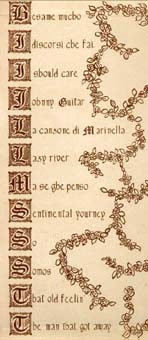 Besame mucho
I discorsi che fai
I should care
Johnny Guitar
La canzone di Marinella
Lazy river
Ma se ghe penso
Sentimental yourney
So
Somos
That old feelin
The man that got away